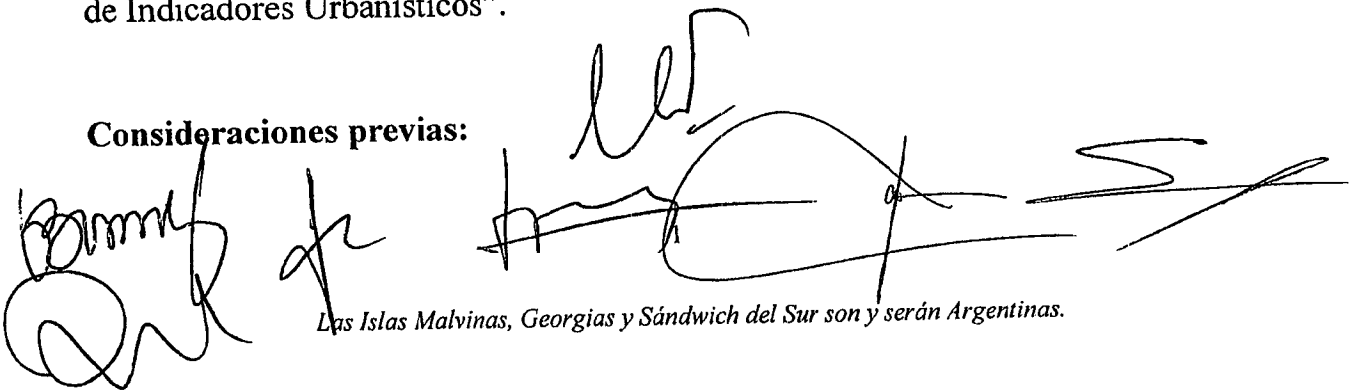 de Indicadores Urbanísticos".
Consideraciones previas:
Las Islas Malvinas, Georgias y Sándwich del Sur son y serán Argentinas.